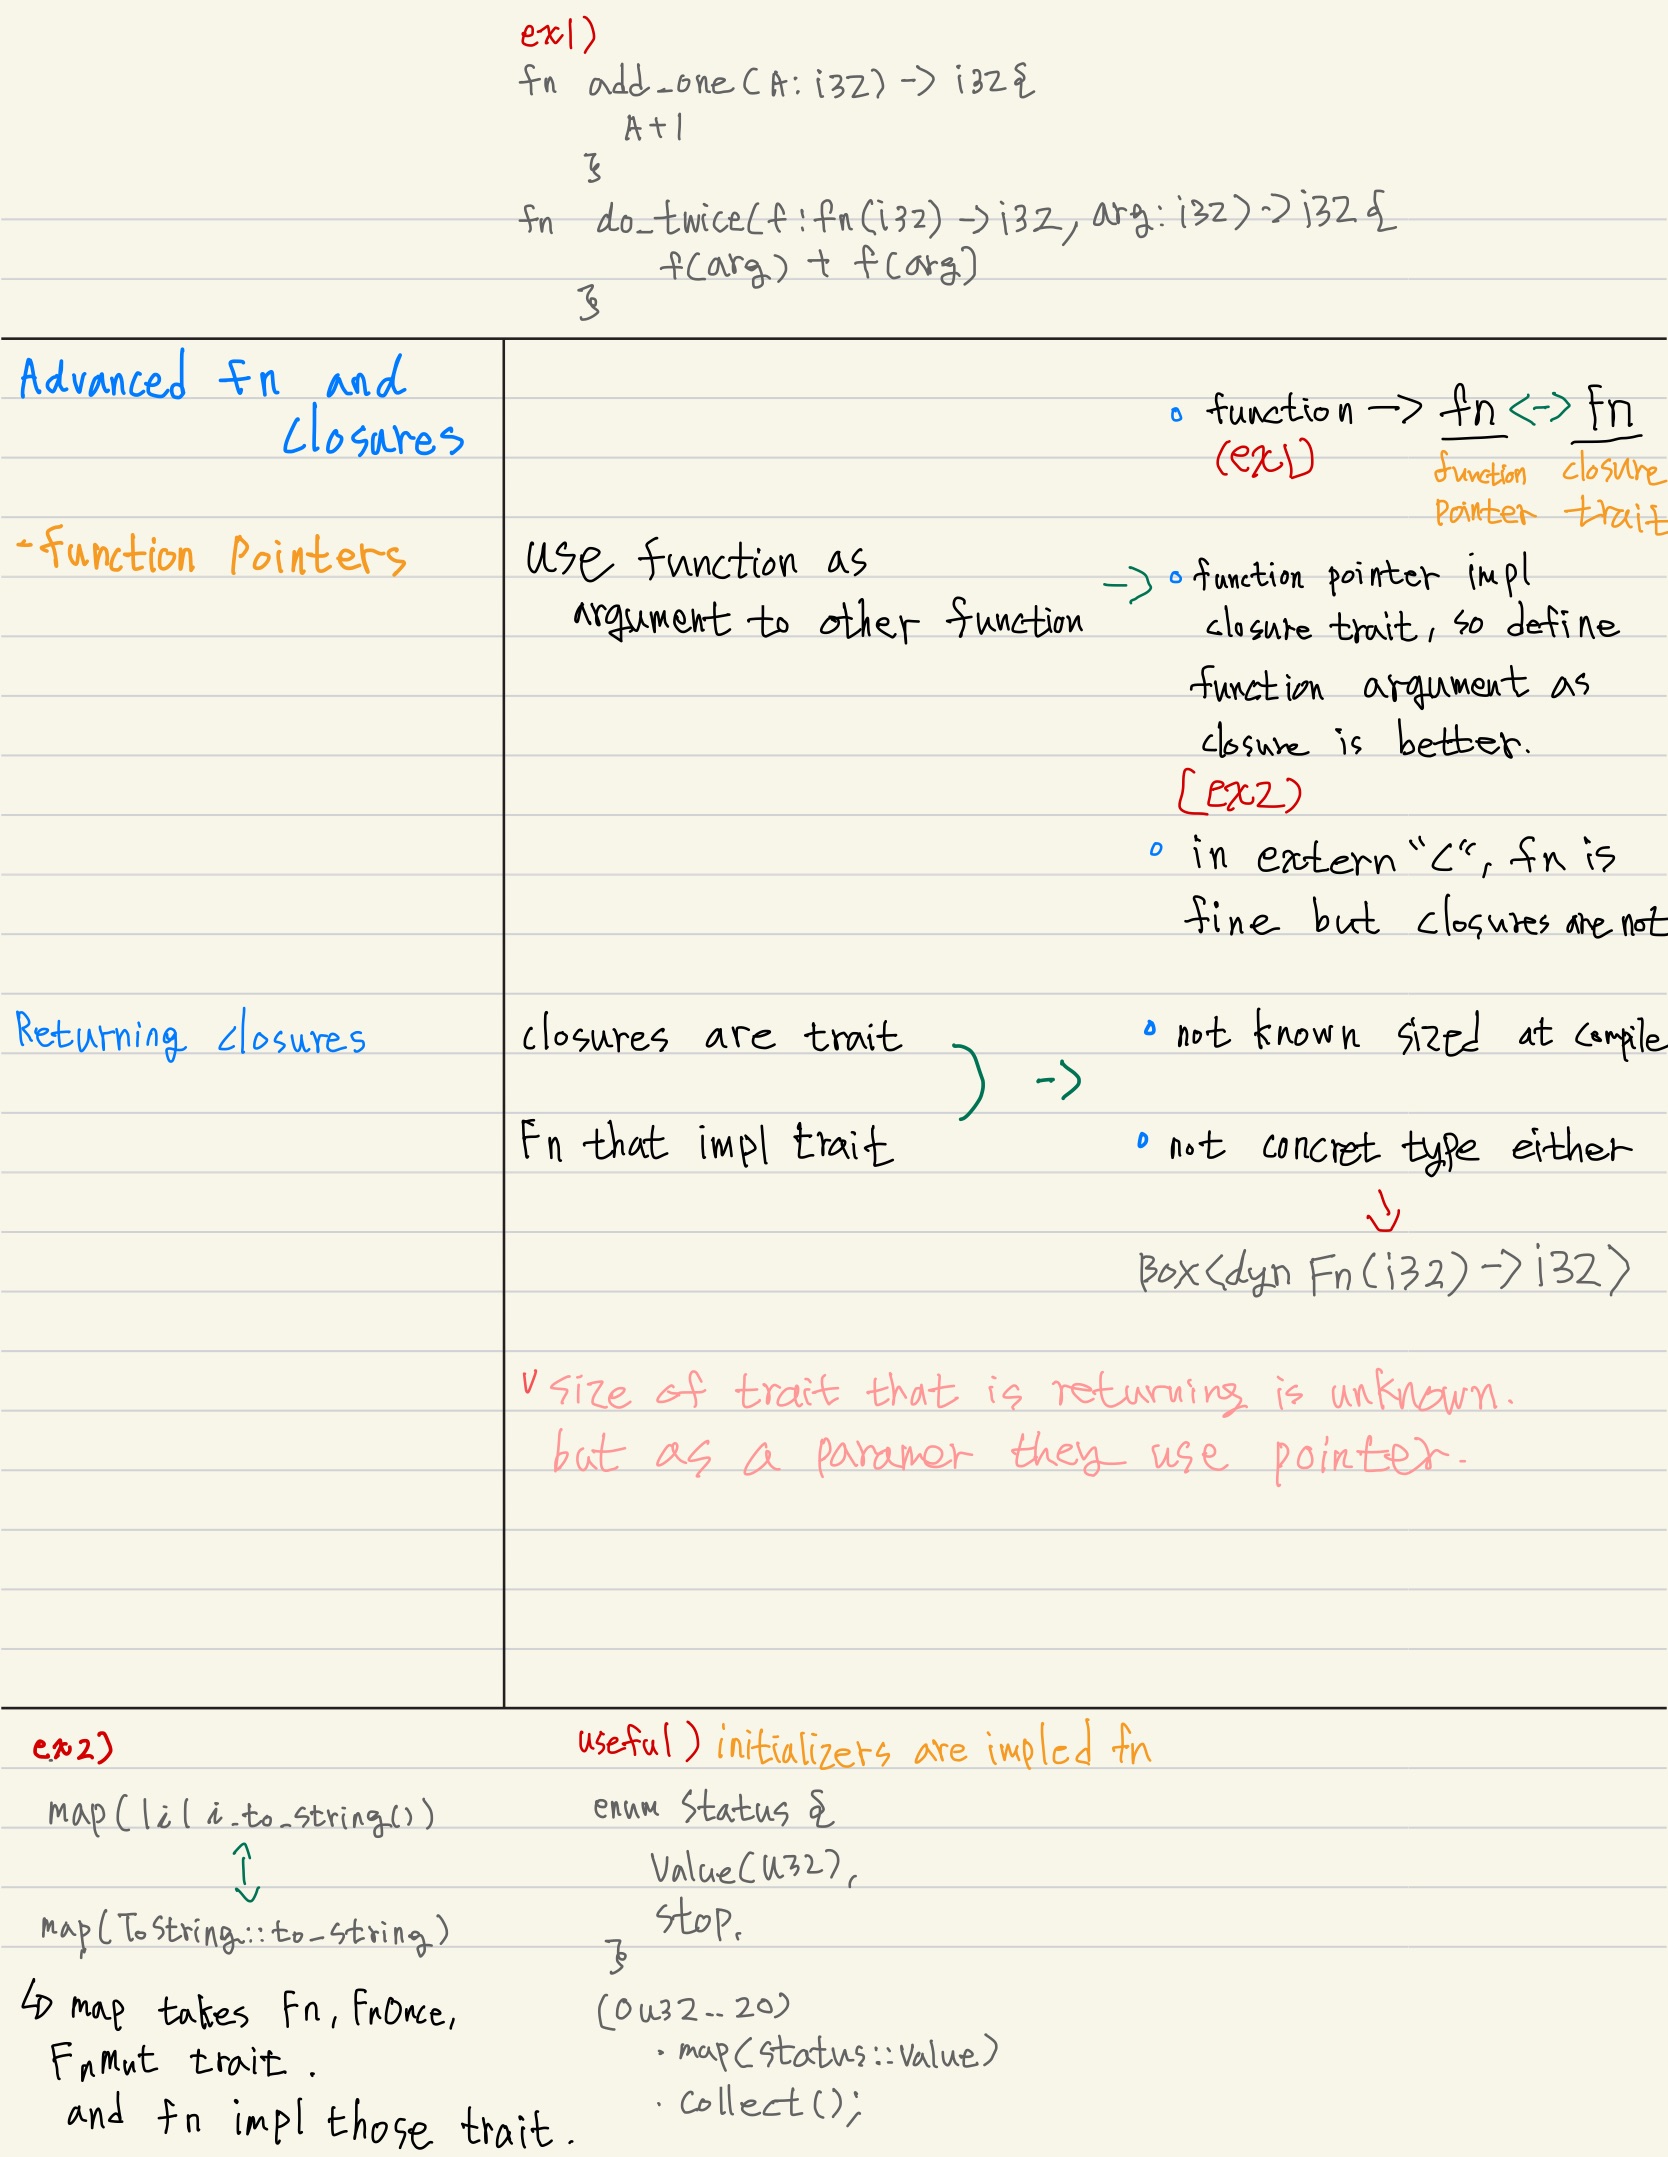 ex1)
fn add_one(A: i32) -> i32{
A+1
}
fn do_twice(f:fn(i32)->i32, arg:i32)->i32{
f(arg) + f(arg)
}
Advanced fn and
closures
∘ function -> fn <-> Fn
(ex1)
function closure
pointer trait
-function Pointers
use function as
argument to other function
-> ∘ function pointer impl
closure trait, so define
function argument as
closure is better.
[ex2)
∘ in extern "C", fn is
fine but closures are not
Returning closures
closures are trait
Fn that impl trait
->
∘ not known sized at compile
∘ not concret type either
↓
Box<dyn Fn(i32)->i32>
v size of trait that is returning is unknown.
but as a paramer they use pointer.
ex2)
map(|i| i.to_string())
↕
map(ToString::to_string)
↳ map takes Fn, FnOnce,
FnMut trait.
and fn impl those trait.
useful) initializers are impled fn
enum Status {
Value(U32),
stop,
}
(0u32..20)
.map(status::value)
.collect();